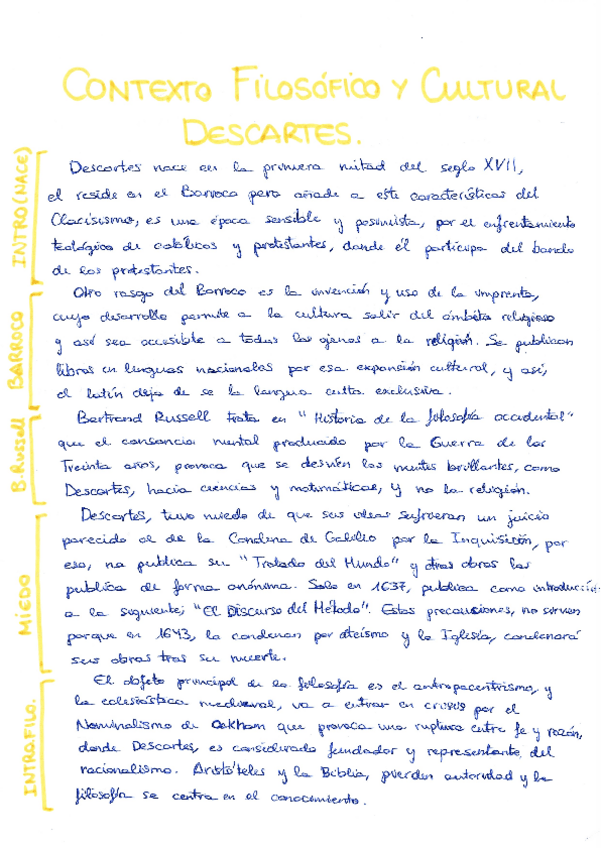 CONTEXTO FILOSÓFICO Y CULTURAL
DESCARTES.
INTRO (NACE)
Descartes nace en la primera mitad del seglo XVII,
el reside en el Barroco pero añade a este características del
Clacisismo, es una época sensible y pesimista, por el enfrentamiento
teológico de católicos y protestantes, donde él participa del bando
de los protestantes.
BARROCO
Otro rasgo del Barroco es la invención y uso de la imprenta,
cuyo desarrollo permite a la cultura salir del ámbito religioso
y así sea accesible a todos los ajenos a la religión. Se publican
libros en lenguas nacionales por esa expansión cultural, y así,
el latín deja de se la lengua culta exclusiva.
B. Russell
Bertrand Russell trata en "Historia de la filosofía occidental"
que el cansancio mental producido por la Guerra de los
Treinta años, provoca que se desvíen las mentes brillantes, como
Descartes, hacia ciencias y matemáticas, y no la religión.
MIEDO
Descartes, tuvo miedo de que sus ideas sufrieran un juicio
parecido al de la Condena de Galileo por la Inquisición, por
eso, no publica su "Tratado del Mundo" y otras obras las
publica de forma anónima. Solo en 1637, publica como introducció
a la siguiente; "El Discurso del Método". Estas precauciones, no sirven
porque en 1643, la condenan por ateísmo y la Iglesia, condenará
sus obras tras su muerte.
INTRO.FILO.
El objeto principal de la filosofía es el antropocentrismo, y
la eclesiástica medieval, va a entrar en crisis por el
Nominalismo de Ockham que provoca una ruptura entre fe y razón,
donde Descartes, es considerado fundador y representante del
racionalismo. Aristóteles y la Biblia, pierden autoridad y la
filosofía se centra en el conocimiento.